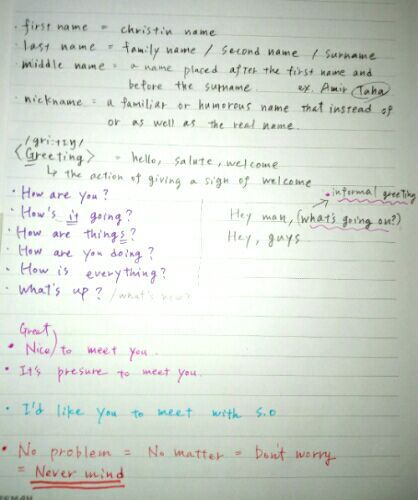 · first name = christin name
· last name = family name / second name / surname
· middle name = a name placed after the first name and
before the surname. ex. Amir Taha
· nickname = a familiar or humorous name that instead of
or as well as the real name.
/gri:tIŋ/
<Greeting> = hello, salute, welcome
↳ the action of giving a sign of welcome
· How are you?
• informal greeting
· How's it going?
Hey man, (what's going on?)
· How are things?
Hey, guys
· How are you doing?
· How is everything?
· What's up? / what's new?
Great
• Nice/ to meet you.
• It's presure to meet you.
· I'd like you to meet with s.o
• No problem = No matter = Don't worry
= Never mind